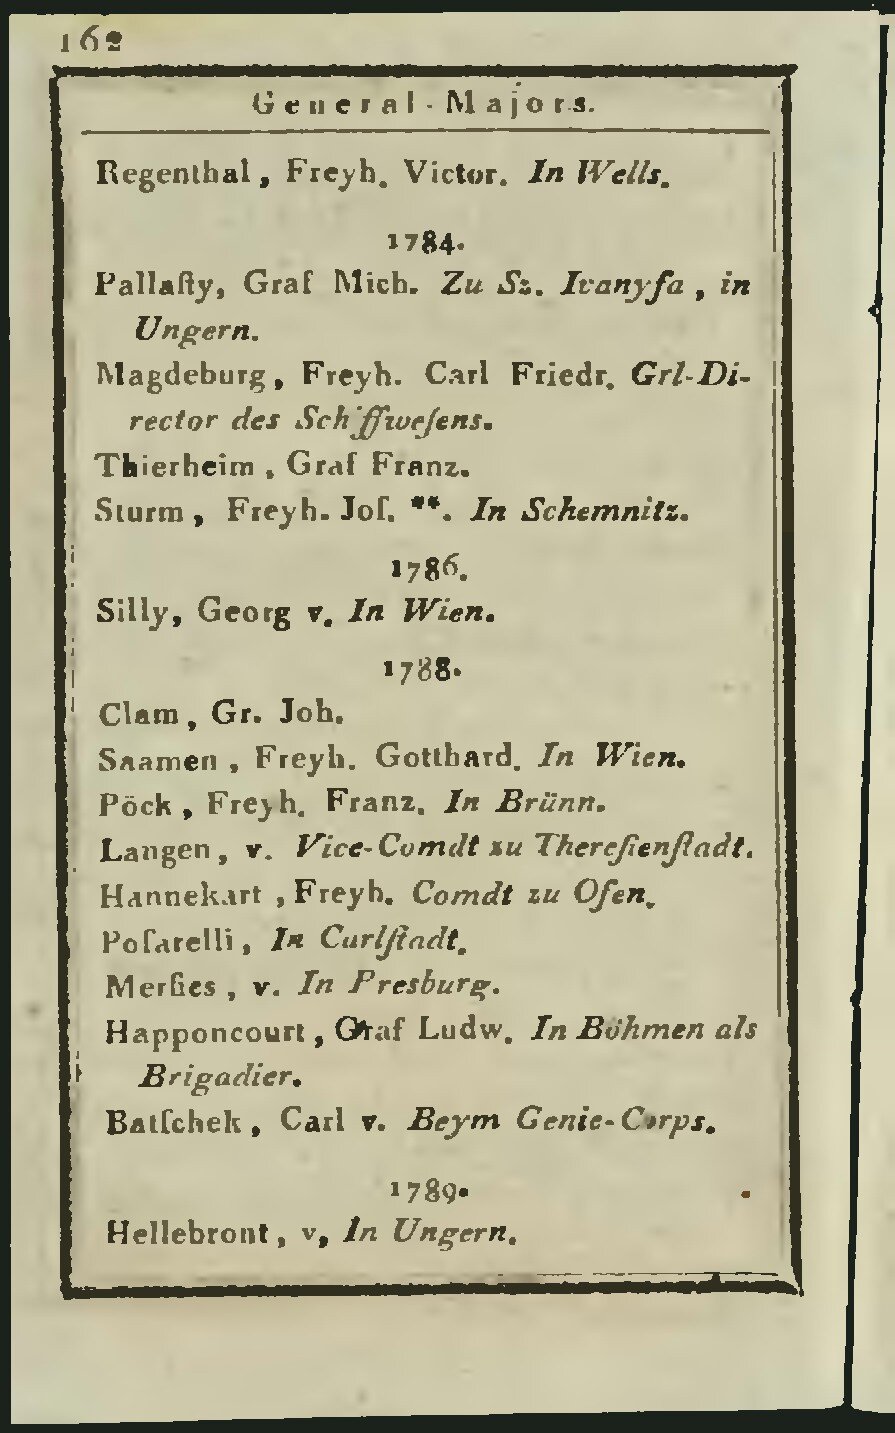 162
General-Majors.
Regenthal, Freyh. Victor. In Wells.
1784.
Pallaſty, Graf Mich. Zu Sz. Ivanyfa, in
Ungern.
Magdeburg, Freyh. Carl Friedr. Grl-Di-
rector des Schiffweſens.
Thierheim, Graf Franz.
Sturm, Freyh. Joſ. **. In Schemnitz.
1786.
Silly, Georg v. In Wien.
1788.
Clam, Gr. Joh.
Saamen, Freyh. Gotthard. In Wien.
Pöck, Freyh. Franz. In Brünn.
Langen, v. Vice-Comdt zu Thereſienſtadt.
Hannekart, Freyh. Comdt zu Ofen.
Poſarelli, In Carlſtadt.
Merſies, v. In Presburg.
Happoncourt, Graf Ludw. In Böhmen als
Brigadier.
Batſchek, Carl v. Beym Genie-Corps.
1789.
Hellebront, v, In Ungern.